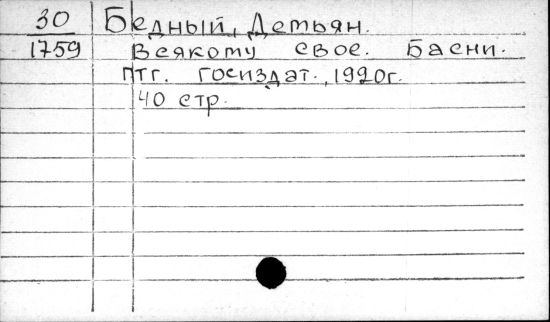 30 Бедный, Детьян.
1759 Всякому свое. Басни.
Птг. Госиздат., 1920г.
40 стр.